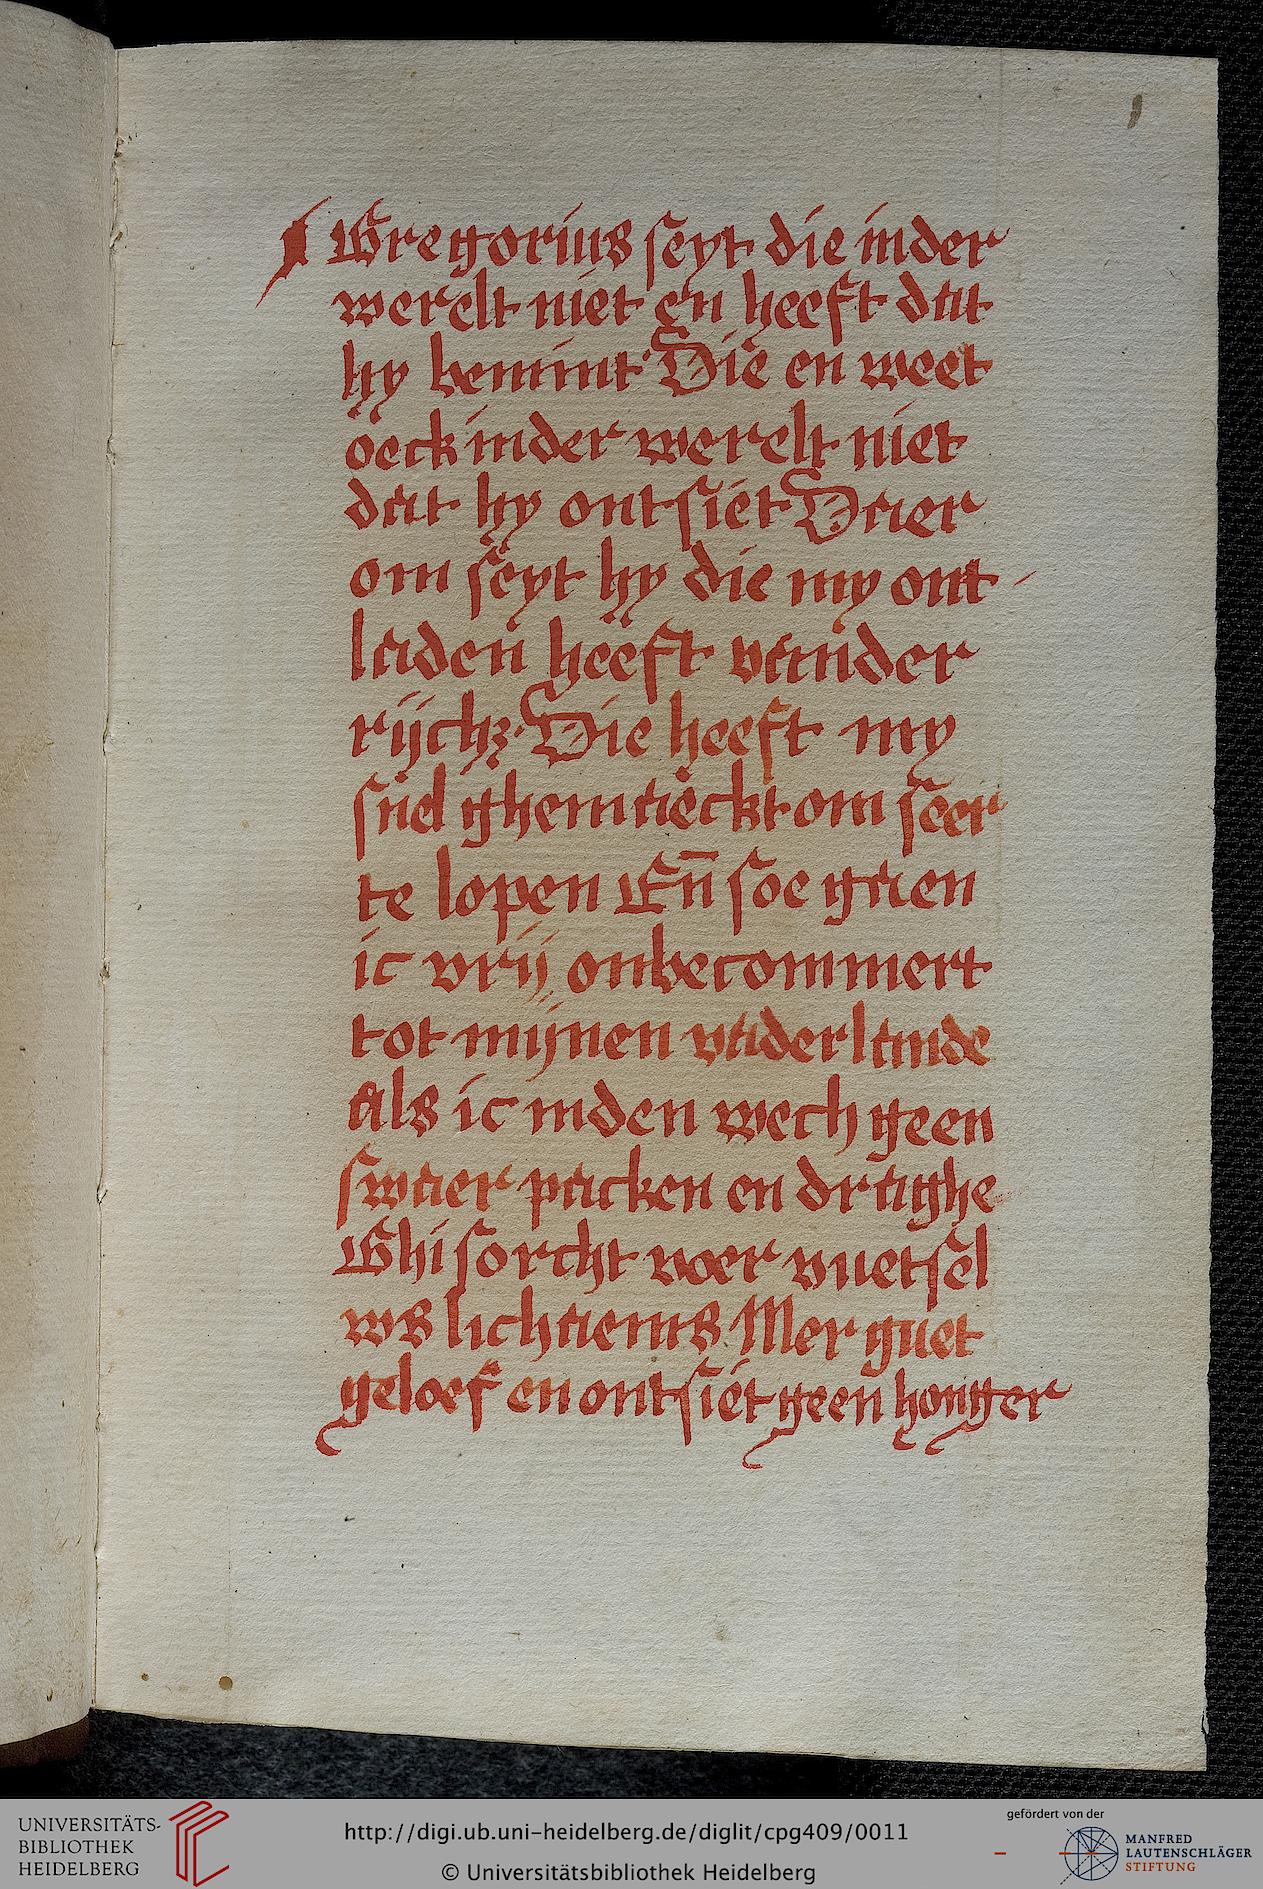 1
Gregorius seyt die inder
werelt niet en heeft dat
hy bemint· Die en weet
oeck inder werelt niet
dat hy ontsiet Daer
om seyt hy die my ont
laden heeft vander
rijchz· Die heeft my
snel ghemaeckt om seer
te lopen En̄ soe gaen
ic vrij onbecommert
tot mijnen vaderlande
Als ic inden wech geen
swaer packen en draghe
Ghi sorcht voer vuetsel
ws lichaems. Mer guet
geloef en ontsiet geen hongger
UNIVERSITÄTS-
BIBLIOTHEK
HEIDELBERG
http://digi.ub.uni-heidelberg.de/diglit/cpg409/0011
© Universitätsbibliothek Heidelberg
gefördert von der
MANFRED
LAUTENSCHLÄGER
STIFTUNG